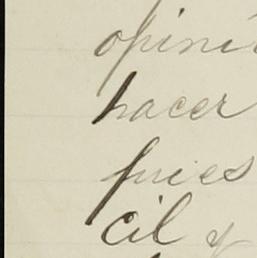 opini
hacer
pues
cil y